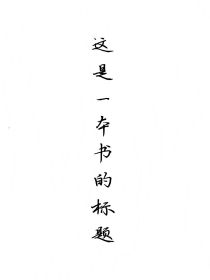 这是一本书的标题